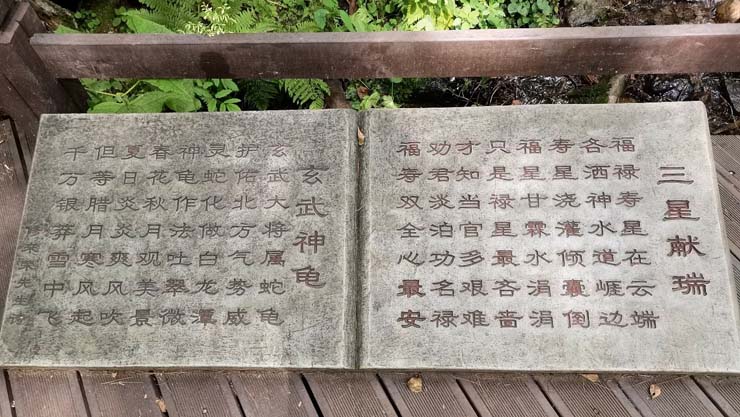 三星献瑞
福禄寿星在云端
各洒神水道崕边
寿星浇灌倾囊倒
福星甘霖水涓涓
只是禄星最吝啬
才知当官多艰难
劝君淡泊功名禄
福寿双全心最安
玄武神龟
玄武大将属蛇龟
护佑北方气势威
灵蛇化做白龙潭
神龟作法吐翠微
春花秋月观美景
夏日炎炎爽风吹
但等腊月寒风起
千万银莽雪中飞
先生